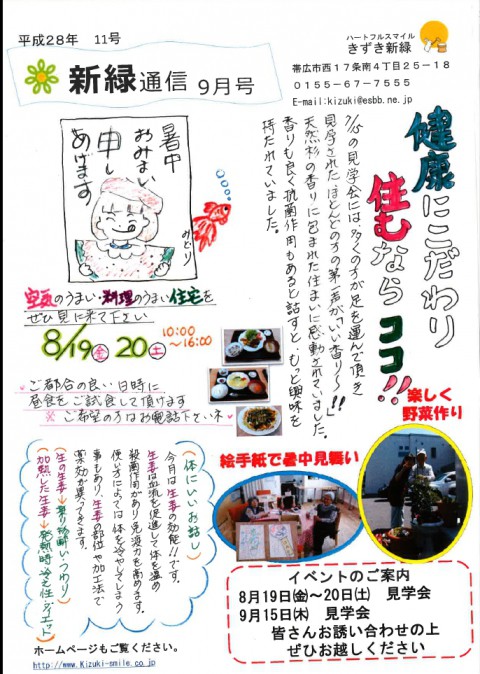 平成28年　11号
新緑通信 9月号
ハートフルスマイル
きずき新緑
帯広市西17条南4丁目25－18
0155－67－7555
E-mail:kizuki@esbb.ne.jp
健康にこだわり
住むなら ココ!!
7/15の見学会には、多くの方が足を運んで頂き
見学されたほとんどの方の第一声が「いい香り〜!!」
天然杉の香りに包まれた住まいに感動されていました。
香りも良く抗菌作用もあると話すと、もっと興味を
持たれていました。
暑中
おみまい
申し
あげます
みどり
空気のうまい・料理のうまい住宅を
ぜひ見に来て下さい
8/19金 20土 10:00
～16:00
ご都合の良い日時に
昼食をご試食して頂けます
※ご希望の方はお電話下さい※
楽しく
野菜作り
絵手紙で暑中見舞い
(体にいいお話し)
今月は生姜の効能!!です。
生姜は血流を促進して体を温め
殺菌作用があり免疫力を高めます。
使い方によっては体を冷やしてしまう
事もあり、生姜の部位や加工法で
薬効が異ってきます。
加熱した生姜→
イベントのご案内
8月19日(金)～20日(土)　見学会
9月15日(木)　見学会
皆さんお誘い合わせの上
ぜひお越しください
ホームページもご覧ください。
http://www.Kizuki-smile.co.jp